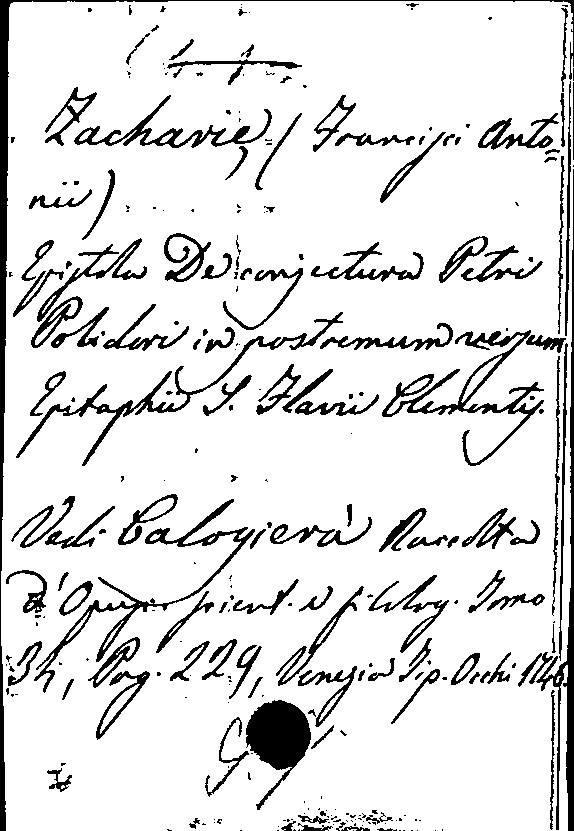 Zacharie, (Francisci Anto=
nii)
Epistola De conjectura Petri
Polidori in postremum versum
Epitaphii S. Flavii Clementis.
Vedi Calogierà Raccolta
d'Opusc. scient. e filolog. Tomo
34, Pag. 229, Venezia Tip. Occhi 1746.